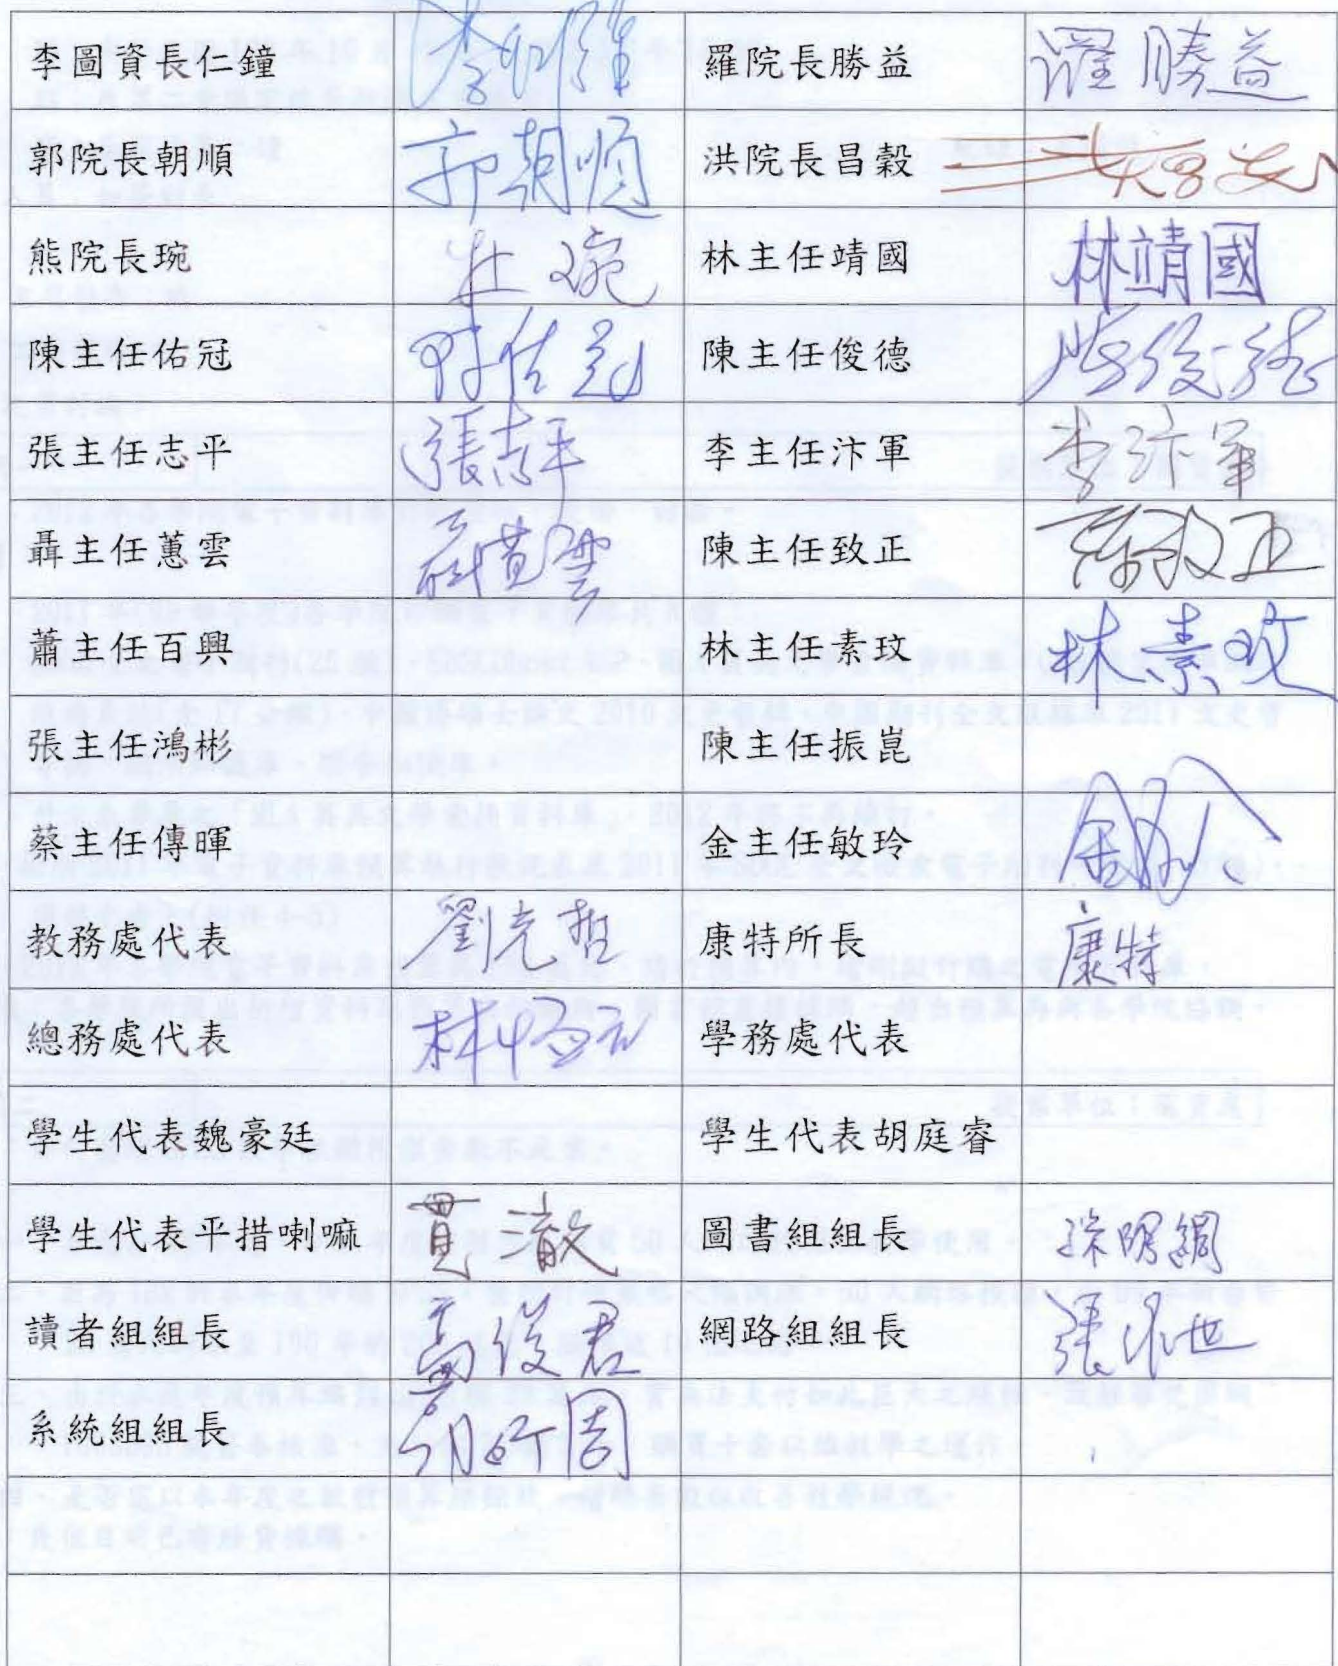 李圖資長仁鐘 李仁鐘 羅院長勝益 羅勝益
郭院長朝順 郭朝順 洪院長昌穀
熊院長琬 林主任靖國 林靖國
陳主任佑冠 陳佑冠 陳主任俊德 陳俊德
張主任志平 張志平 李主任汴軍 李汴軍
聶主任蕙雲 聶蕙雲 陳主任致正 陳致正
蕭主任百興 林主任素玟 林素玟
張主任鴻彬 陳主任振崑
蔡主任傳暉 金主任敏玲
教務處代表 劉光哲 康特所長 康特
總務處代表 學務處代表
學生代表魏豪廷 學生代表胡庭睿
學生代表平措喇嘛 圖書組組長
讀者組組長 高俊君 網路組組長
系統組組長